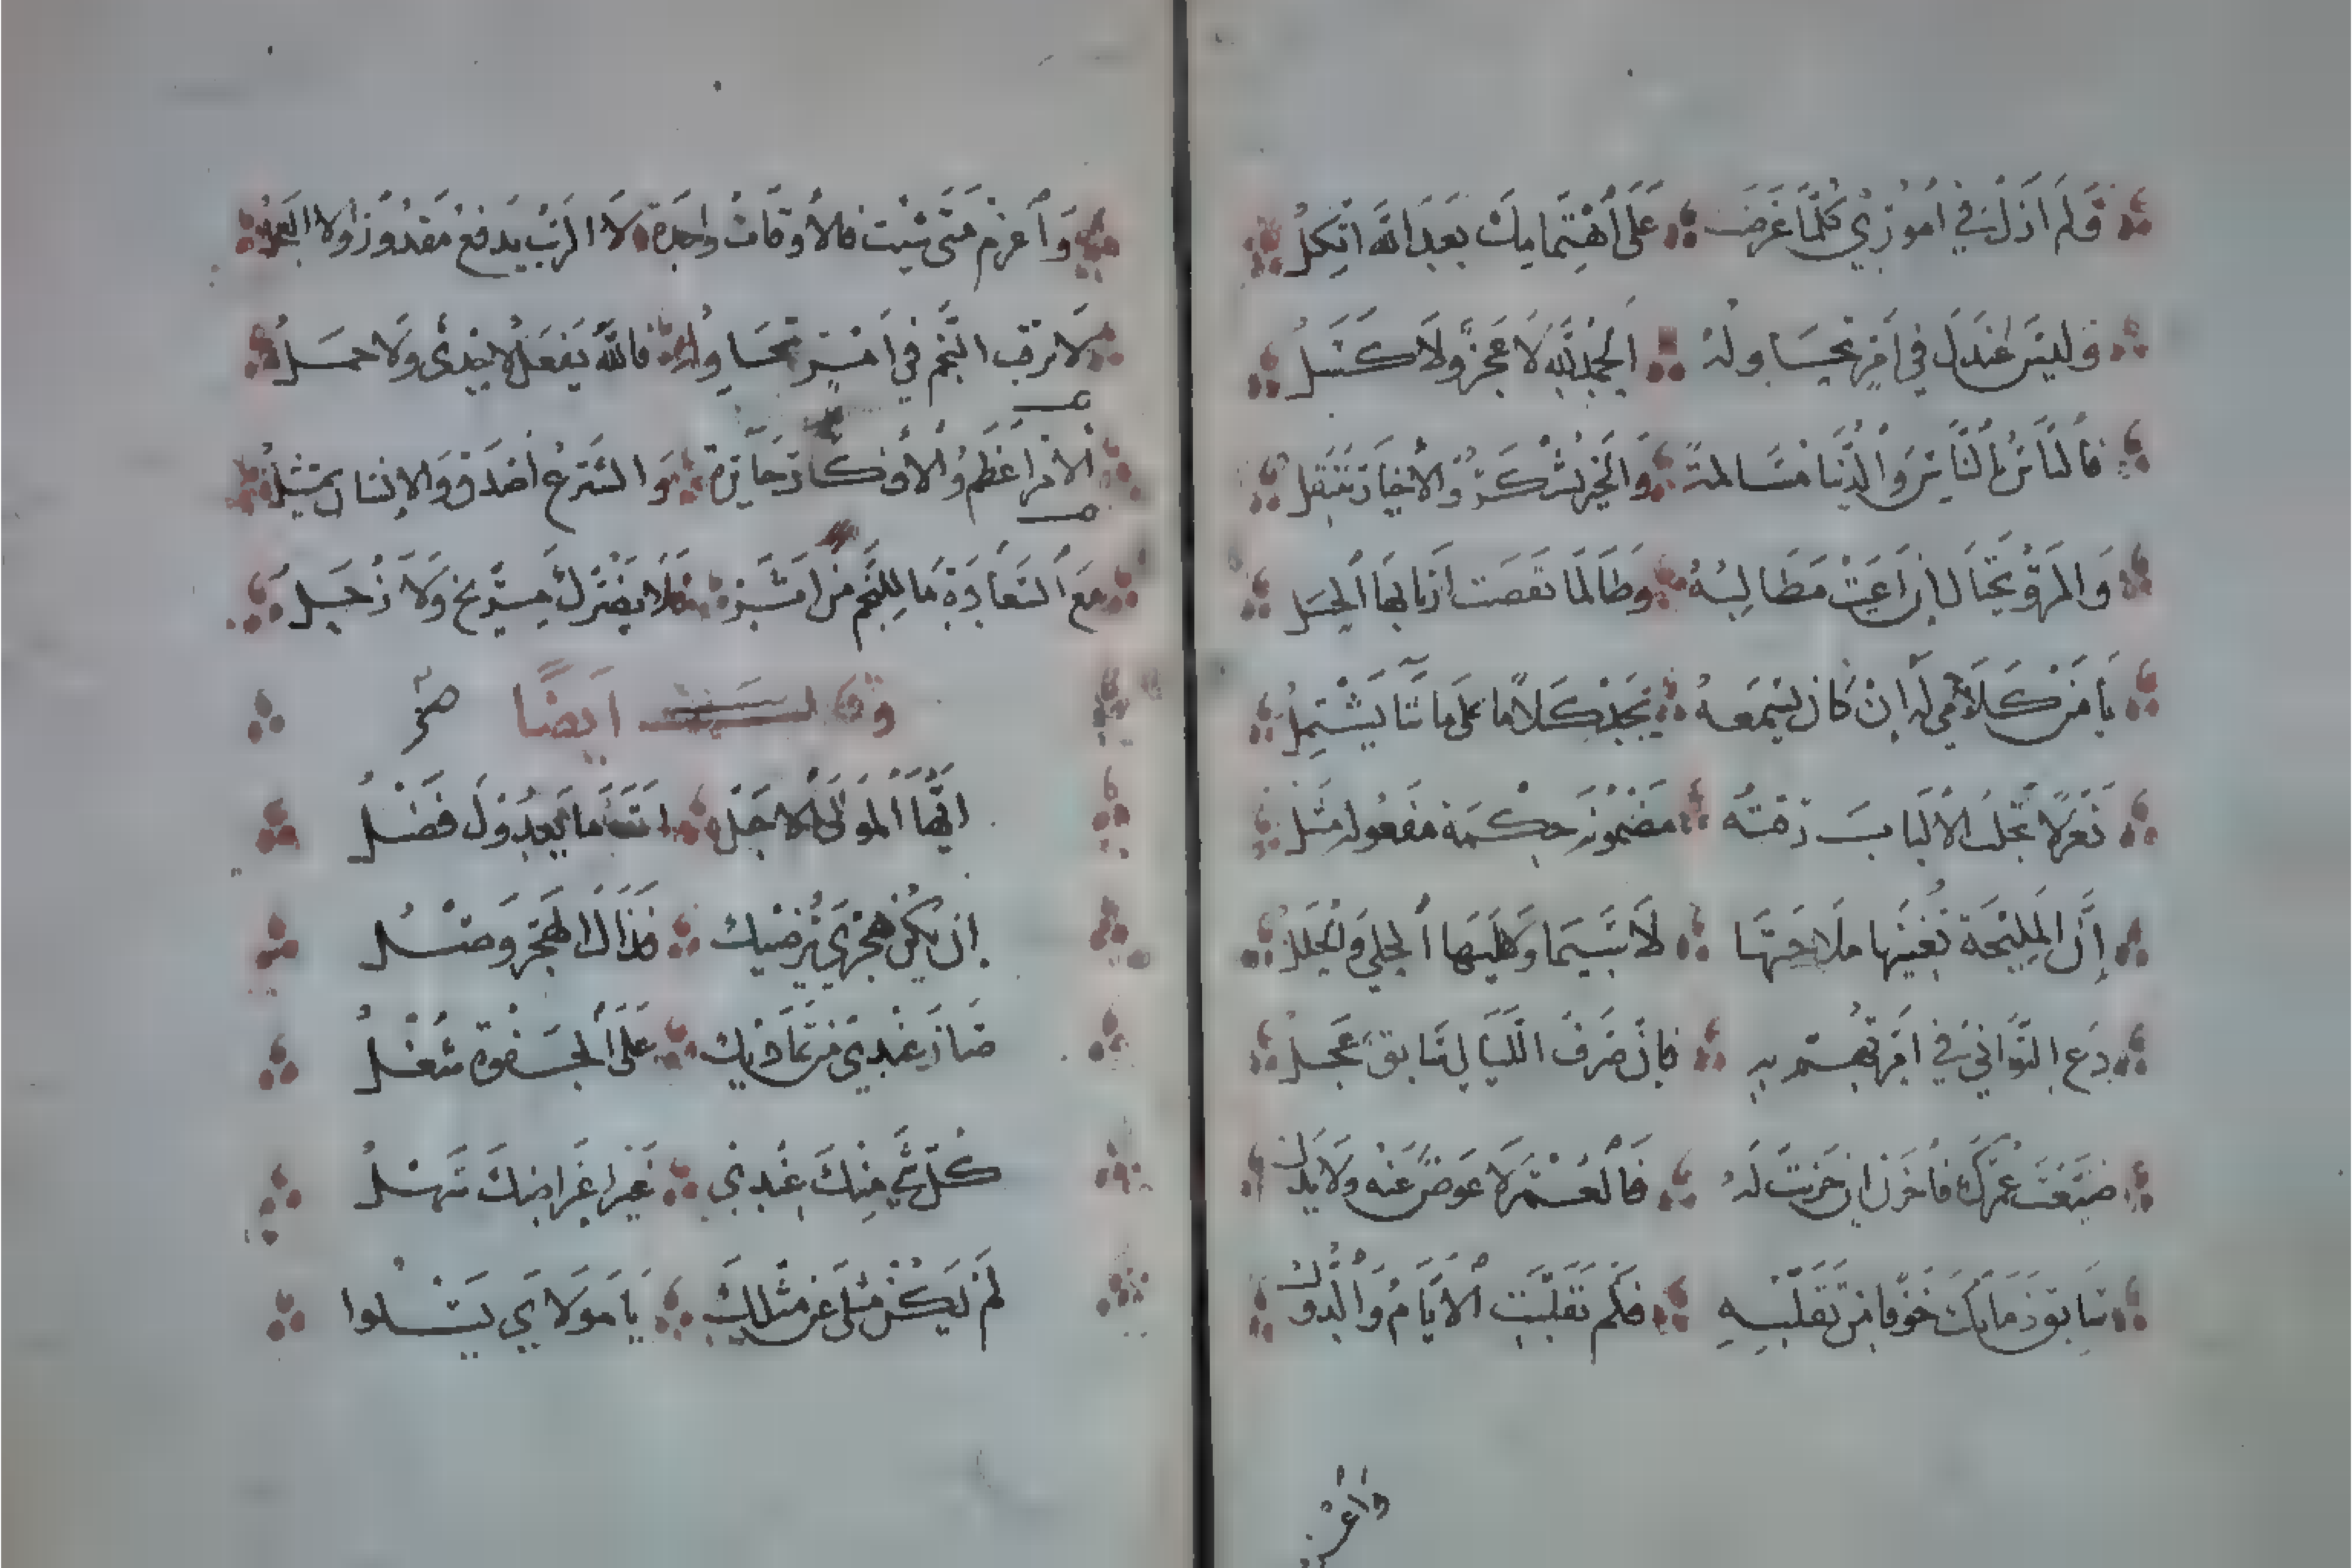 وَلَم ازَلْ في اُمُوْرِي كُلَّمَا عَرَضَت عَلَى اهْتِمَامِكَ بَعدَ اللهِ اتَّكِلُ
وليسَ عندَكَ في امْرٍ تُحَاولهُ الحمدُ للهِ لا عَجزٌ ولا كَسَلُ
فالنَّاسُ بالنَّاسِ والدُّنيَا مُسَالمةٌ والخيرُ يُشْكَرُ والأخبارُ تَنْتَقِلُ
وَالمرءُ يحتَالُ ان عَزَّتْ مَطَالِبُهُ وطَالَما نَفَعَت اربَابها الحِيَلُ
يَا مَنْ كَلامِي لَهُ اِنْ كَانَ يَسْمَعهُ يَجِدْ كَلامًا عَلى مَا شَا يَشْتَمِلُ
تَغَزُّلًا تخلُبُ الالبَابَ رِقتُهُ مَضْمُونهُ حِكْمَة مَفعُوله مَثَلُ
إِنَّ المَلِيْحَةَ تُغْنِيْهَا مَلاحَتُهَا لا سِيَّمَا وعَلَيْهَا الحلي وَالحُلَلُ
دَعِ التَّواني في امْرٍ تهُمُّ بهِ فَانَّ صَرفَ اللّيَالي سَابِقٌ عَجِلُ
ضَيَّعْتَ عُمْرَكَ فاحزَن ان حَزِنتَ لَهُ فَالعُمْرُ لا عِوَضٌ عَنْه ولا بَدَلُ
سَابِق زَمَانَكَ خَوْفًا مِن تَقَلُّبِهِ فَكَم تَقَلَّبَتِ الأيَّامُ والدُّولُ
واعز
وَاعزمْ مَتَى شِئتَ فالأوقاتُ واحِدَة لا الرَّيْثُ يَدفعُ مَقدُورًا ولا العَجلُ
لا ترقبِ النَّجْم في امْرٍ تُحَاولهُ فاللهُ يَفعَلُ لا جَدْيٌ ولا حمَلُ
الامرُ اعظَمُ والافكَارُ حَايرَة والشَّرعُ اصْدَقُ والانسَانُ يمتثِلُ
مَعَ السَّعَادَةِ مَا لِلنَّجْمِ مِن اثَرٍ فلا يَضُرُّكَ مِرِّيخٌ ولا زُحَلُ
وقالــــت ايضًا
ايُّهَا المَولَى الاجَلُّ انتَ مَا يَعدُوكَ فَضْلُ
ان يَكُنْ هَجْرِي يُرْضيك فَذَاكَ الهَجْرُ وَصْلُ
صَارَ عِنْدِي مِن تَمَاديك عَلَى الجَفْوَة شُغْلُ
كُلُّ شَيءٍ مِنْكَ عِنْدِي غَيْرَ اعرَاضِكَ سَهْلُ
لَمْ يَكُنْ مِثلي عَن مِثلِكَ يَا مَولايَ يَسْلُوا